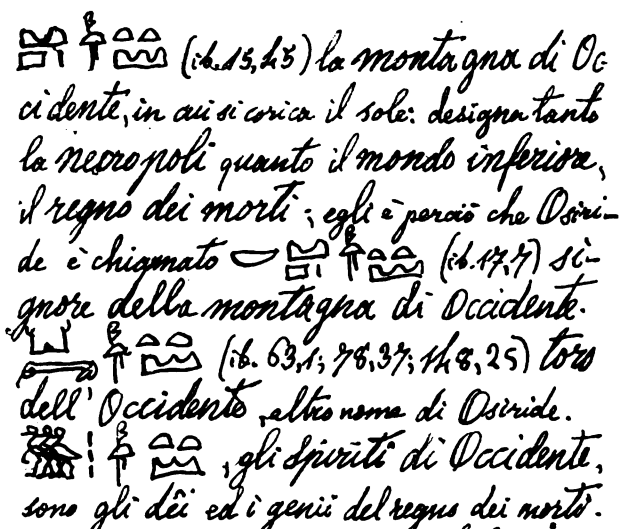 (ib. 15, 45) la montagna di Oc
cidente, in cui si corica il sole: designa tanto
la necropoli quanto il mondo inferiore,
il regno dei morti; egli è perciò che Osiri-
de è chiamato (ib. 17, 7) si-
gnore della montagna di Occidente.
(ib. 63, 1; 78, 37; 148, 25) toro
dell' Occidente, altro nome di Osiride.
, gli spiriti di Occidente,
sono gli dêi ed i genii del regno dei morti.